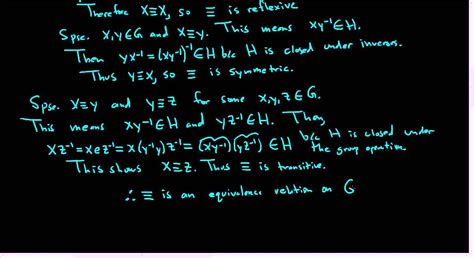 Therefore x≡x, so ≡ is reflexive
Spse. x,y∈G and x≡y. This means xy⁻¹∈H.
Then yx⁻¹=(xy⁻¹)⁻¹∈H b/c H is closed under inverses.
Thus y≡x, so ≡ is symmetric.
Spse. x≡y and y≡z for some x,y,z∈G.
This means xy⁻¹∈H and yz⁻¹∈H. Then,
xz⁻¹=xez⁻¹=x(y⁻¹y)z⁻¹=(xy⁻¹)(yz⁻¹)∈H b/c H is closed under
the group operation.
This shows x≡z. Thus ≡ is transitive.
∴ ≡ is an equivalence relation on G